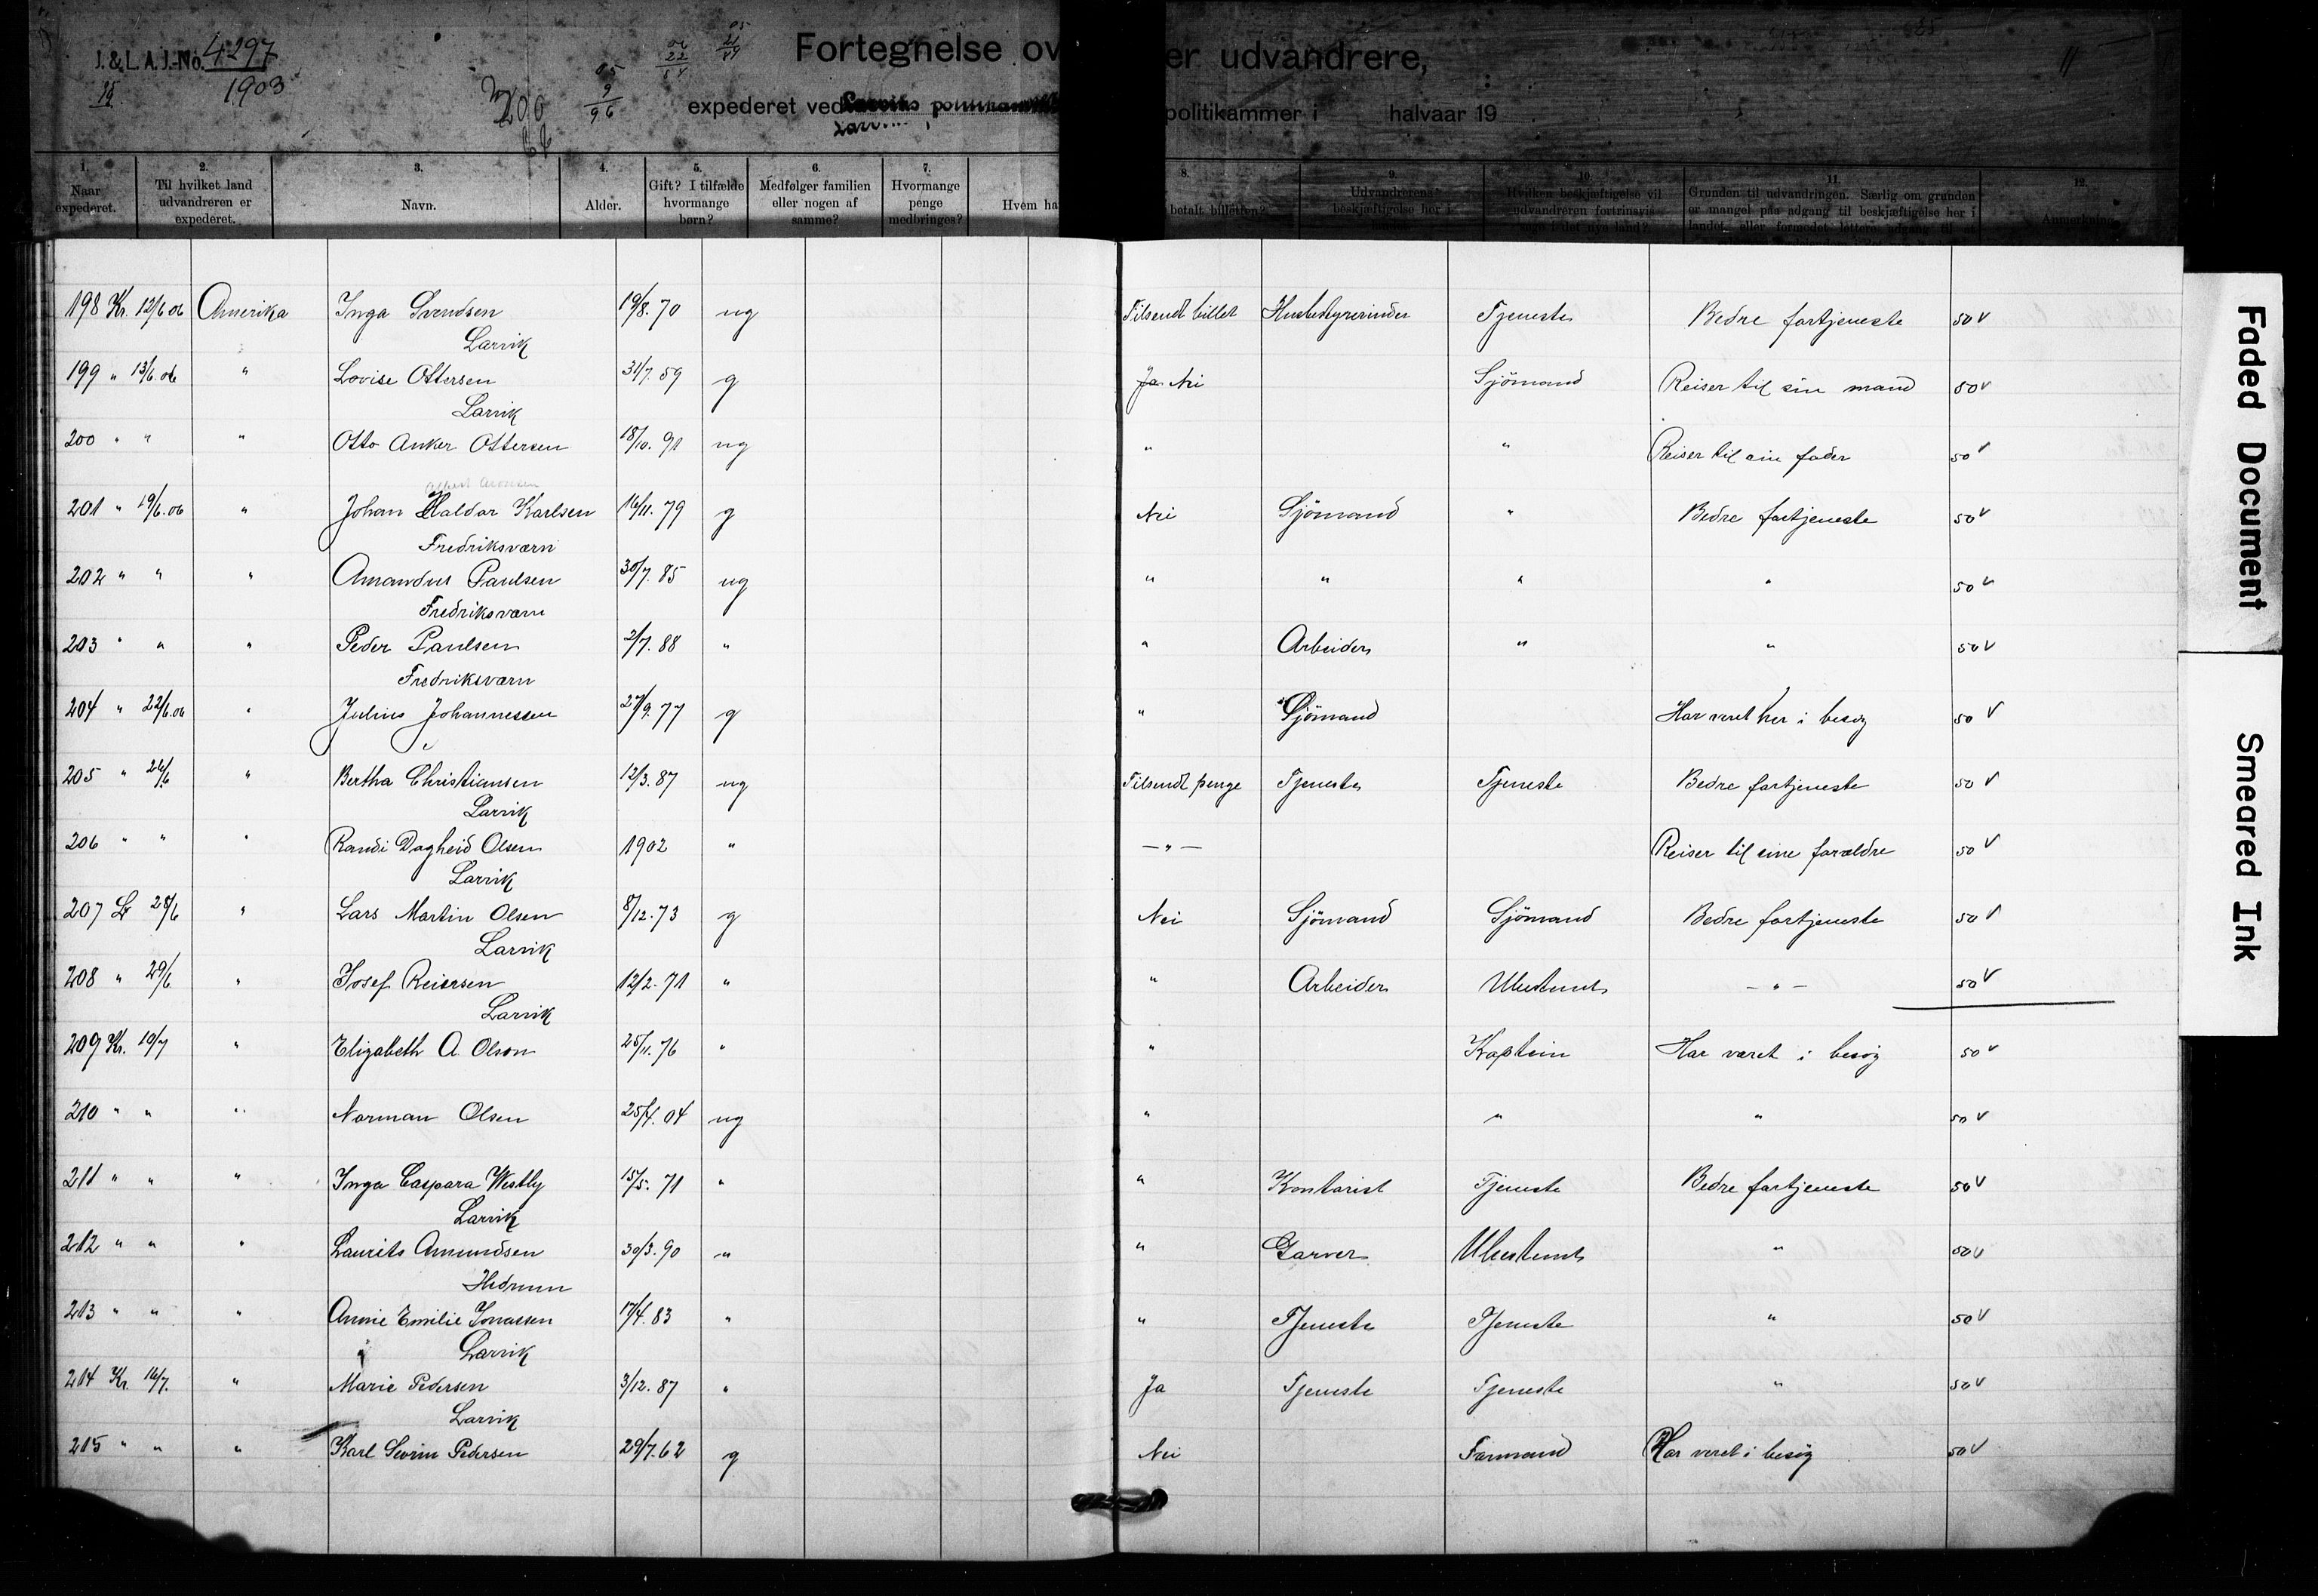 J. & L. A. J.-No. 4297
1903
Fortegnelse ov er udvandrere,
expederet ved politikammer i halvaar 19
1. Naar expederet.
2. Til hvilket land udvandreren er expederet.
3. Navn.
4. Alder.
5. Gift? I tilfælde hvormange børn?
6. Medfølger familien eller nogen af samme?
7. Hvormange penge medbringes?
8. Hvem ha betalt billetten?
9. Udvandrerens beskjæftigelse her i
10. Hvilken beskjæftigelse vil udvandreren fortrinsvis søge i det nye land?
11. Grunden til udvandringen. Særlig om grunden er mangel paa adgang til beskjæftigelse her i landet, eller formodet lettere adgang til at
12. Anmerkning.
198 Kr. 12/6 06 Amerika Inga Svendsen 19/8. 70 ug Tilsendt billet Husbestyrerinde Tjeneste Bedre fortjeneste 50 v
Larvik
199 " 13/6. 06 " Lovise Ottersen 31/7. 59 g Ja Nei Sjömand Reiser til sin mand 50 v
Larvik
200 " " " Otto Anker Ottersen 18/10. 91 ug " " Reiser til sin fader 50 v
201 " 19/6. 06 " Johan Haldor Karlsen 16/11. 79 g Nei Sjömand " Bedre fortjeneste 50 v
Fredriksværn
202 " " " Amandus Paulsen 30/7. 85 ug " " " " 50 v
Fredriksværn
203 " " " Peder Paulsen 2/7. 88 " " Arbeider " " 50 v
Fredriksværn
204 " 22/6. 06 " Julius Johannessen 27/9. 77 g " Sjömand Har veret her i besøg 50 v
205 " 26/6 " Bertha Christiansen 12/3. 87 ug Tilsendt penge Tjeneste Tjeneste Bedre fortjeneste 50 v
Larvik
206 " " " Randi Dagheid Olsen 1902 " — " — Reiser til sine forældre 50 v
Larvik
207 L 28/6 " Lars Martin Olsen 8/12. 73 g Nei Sjömand Sjömand Bedre fortjeneste 50 v
Larvik
208 " 29/6 " Josef Reiersen 12/2. 71 " " Arbeider Ubestemt — " — 50 v
Larvik
209 Kr. 10/7 " Elizabeth A Olson 25/11. 76 " " Kaptein Har været i besøg 50 v
210 " " " Norman Olsen 25/4. 04 ug " " " 50 v
211 " " " Inga Caspara Westby 15/5. 71 " " Kontorist Tjeneste Bedre fortjeneste 50 v
Larvik
212 " " " Laurits Amundsen 30/3. 90 " " Garver Ubestemt " 50 v
Hedrum
213 " " " Annie Emilie Jonassen 17/4. 83 " " Tjeneste Tjeneste " 50 v
Larvik
214 Kr. 16/7. " Marie Pedersen 3/12. 87 " Ja Tjeneste Tjeneste " 50 v
Larvik
215 " " " Karl Severin Pedersen 29/7. 62 g Nei Farmand Har veret i besøg 50 v
Faded Document
Smeared Ink